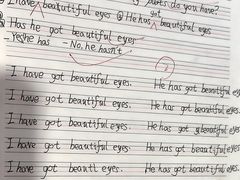 parts do you have?
I have beautiful eyes @ He has got beautiful eyes
Has he got beautiful eyes
- Yes he has - No, he hasn't.
I have got beautiful eyes. He has got beautiful eyes.
I have got beautiful eyes. He has got beautiful eyes.
I have got beautiful eyes. He has got beautiful eyes.
I have got beautiful eyes. He has got beautiful eyes.
I have got beautl eyes. He has got beautiful eyes.